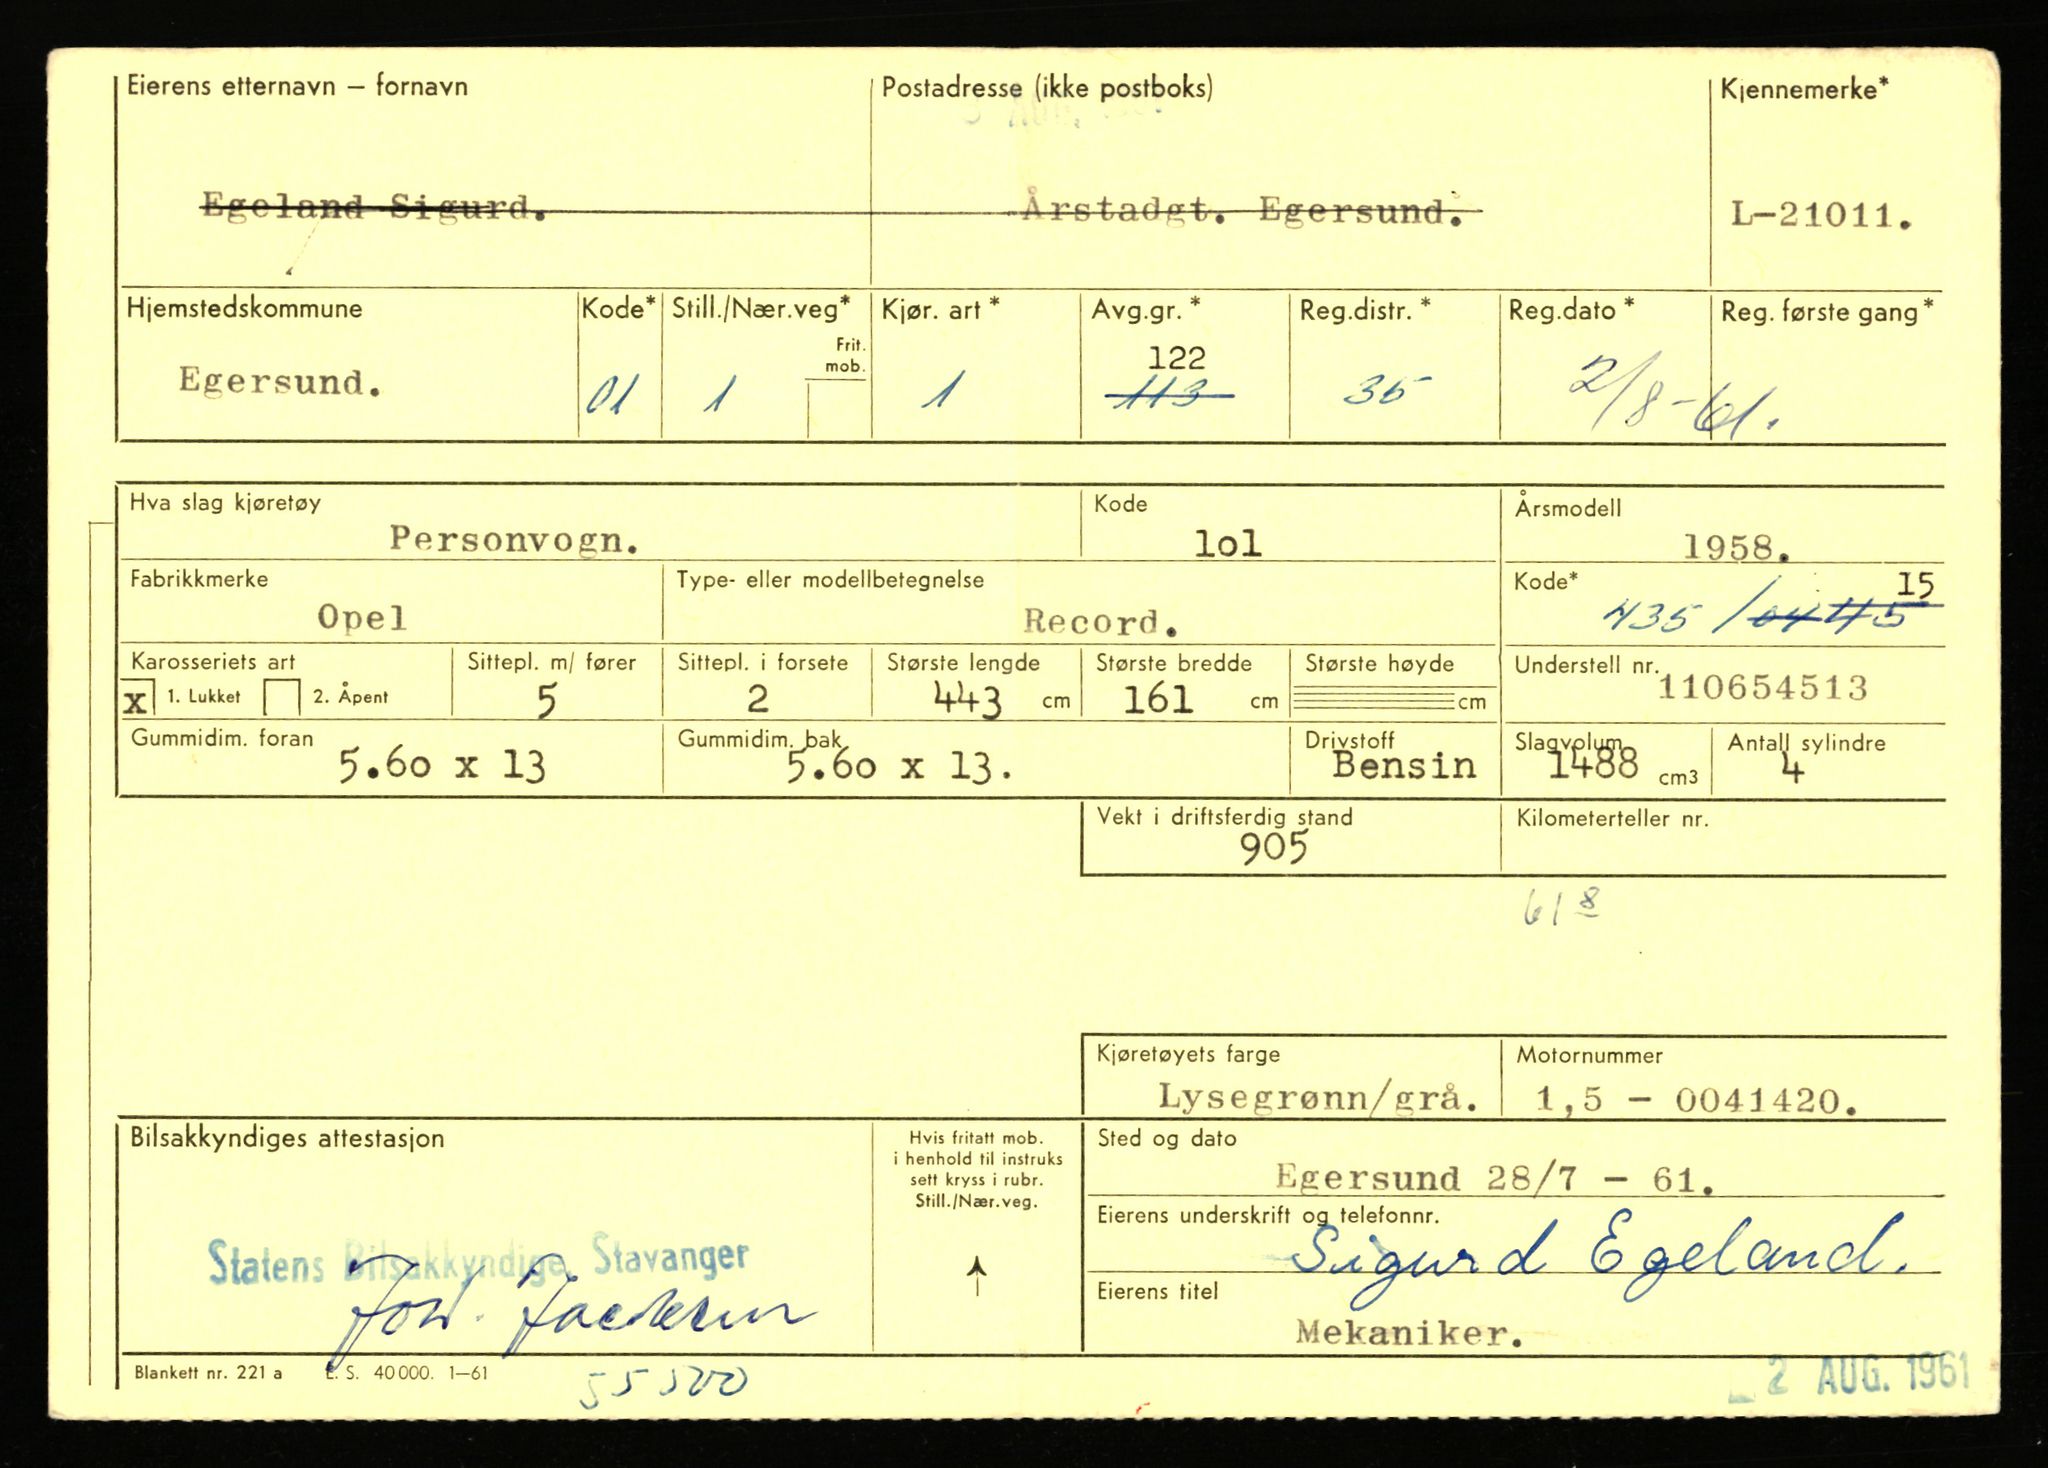 Eierens etternavn – fornavn Postadresse (ikke postboks) Kjennemerke*
AUG.
Egeland Sigurd. Årstadgt. Egersund. L-21011.
Hjemstedskommune Kode* Still./Nær.veg* Kjør. art* Avg.gr.* Reg.distr.* Reg.dato* Reg. første gang*
Frit. mob.
122
Egersund. 01 1 1 113 35 2/8-61.
Hva slag kjøretøy Kode Årsmodell
Personvogn. 1o1 1958.
Fabrikkmerke Type- eller modellbetegnelse Kode* 15
Opel Record. 435 /
Karosseriets art Sittepl. m/ fører Sittepl. i forsete Største lengde Største bredde Største høyde Understell nr.
x 1. Lukket 2. Åpent 5 2 443 cm 161 cm cm 110654513
Gummidim. foran Gummidim. bak Drivstoff Slagvolum Antall sylindre
5.6o x 13 5.6o x 13. Bensin 1488 cm3 4
Vekt i driftsferdig stand Kilometerteller nr.
905
61 8
Kjøretøyets farge Motornummer
Lysegrønn/grå. 1,5 - 0041420.
Bilsakkyndiges attestasjon Hvis fritatt mob. i henhold til instruks sett kryss i rubr. Still./Nær.veg. Sted og dato
Egersund 28/7 - 61.
Eierens underskrift og telefonnr.
Statens Bilsakkyndige, Stavanger Sigurd Egeland.
Eierens titel
Mekaniker.
Blankett nr. 221 a E. S. 40 000. 1–61 55500
2 AUG. 1961